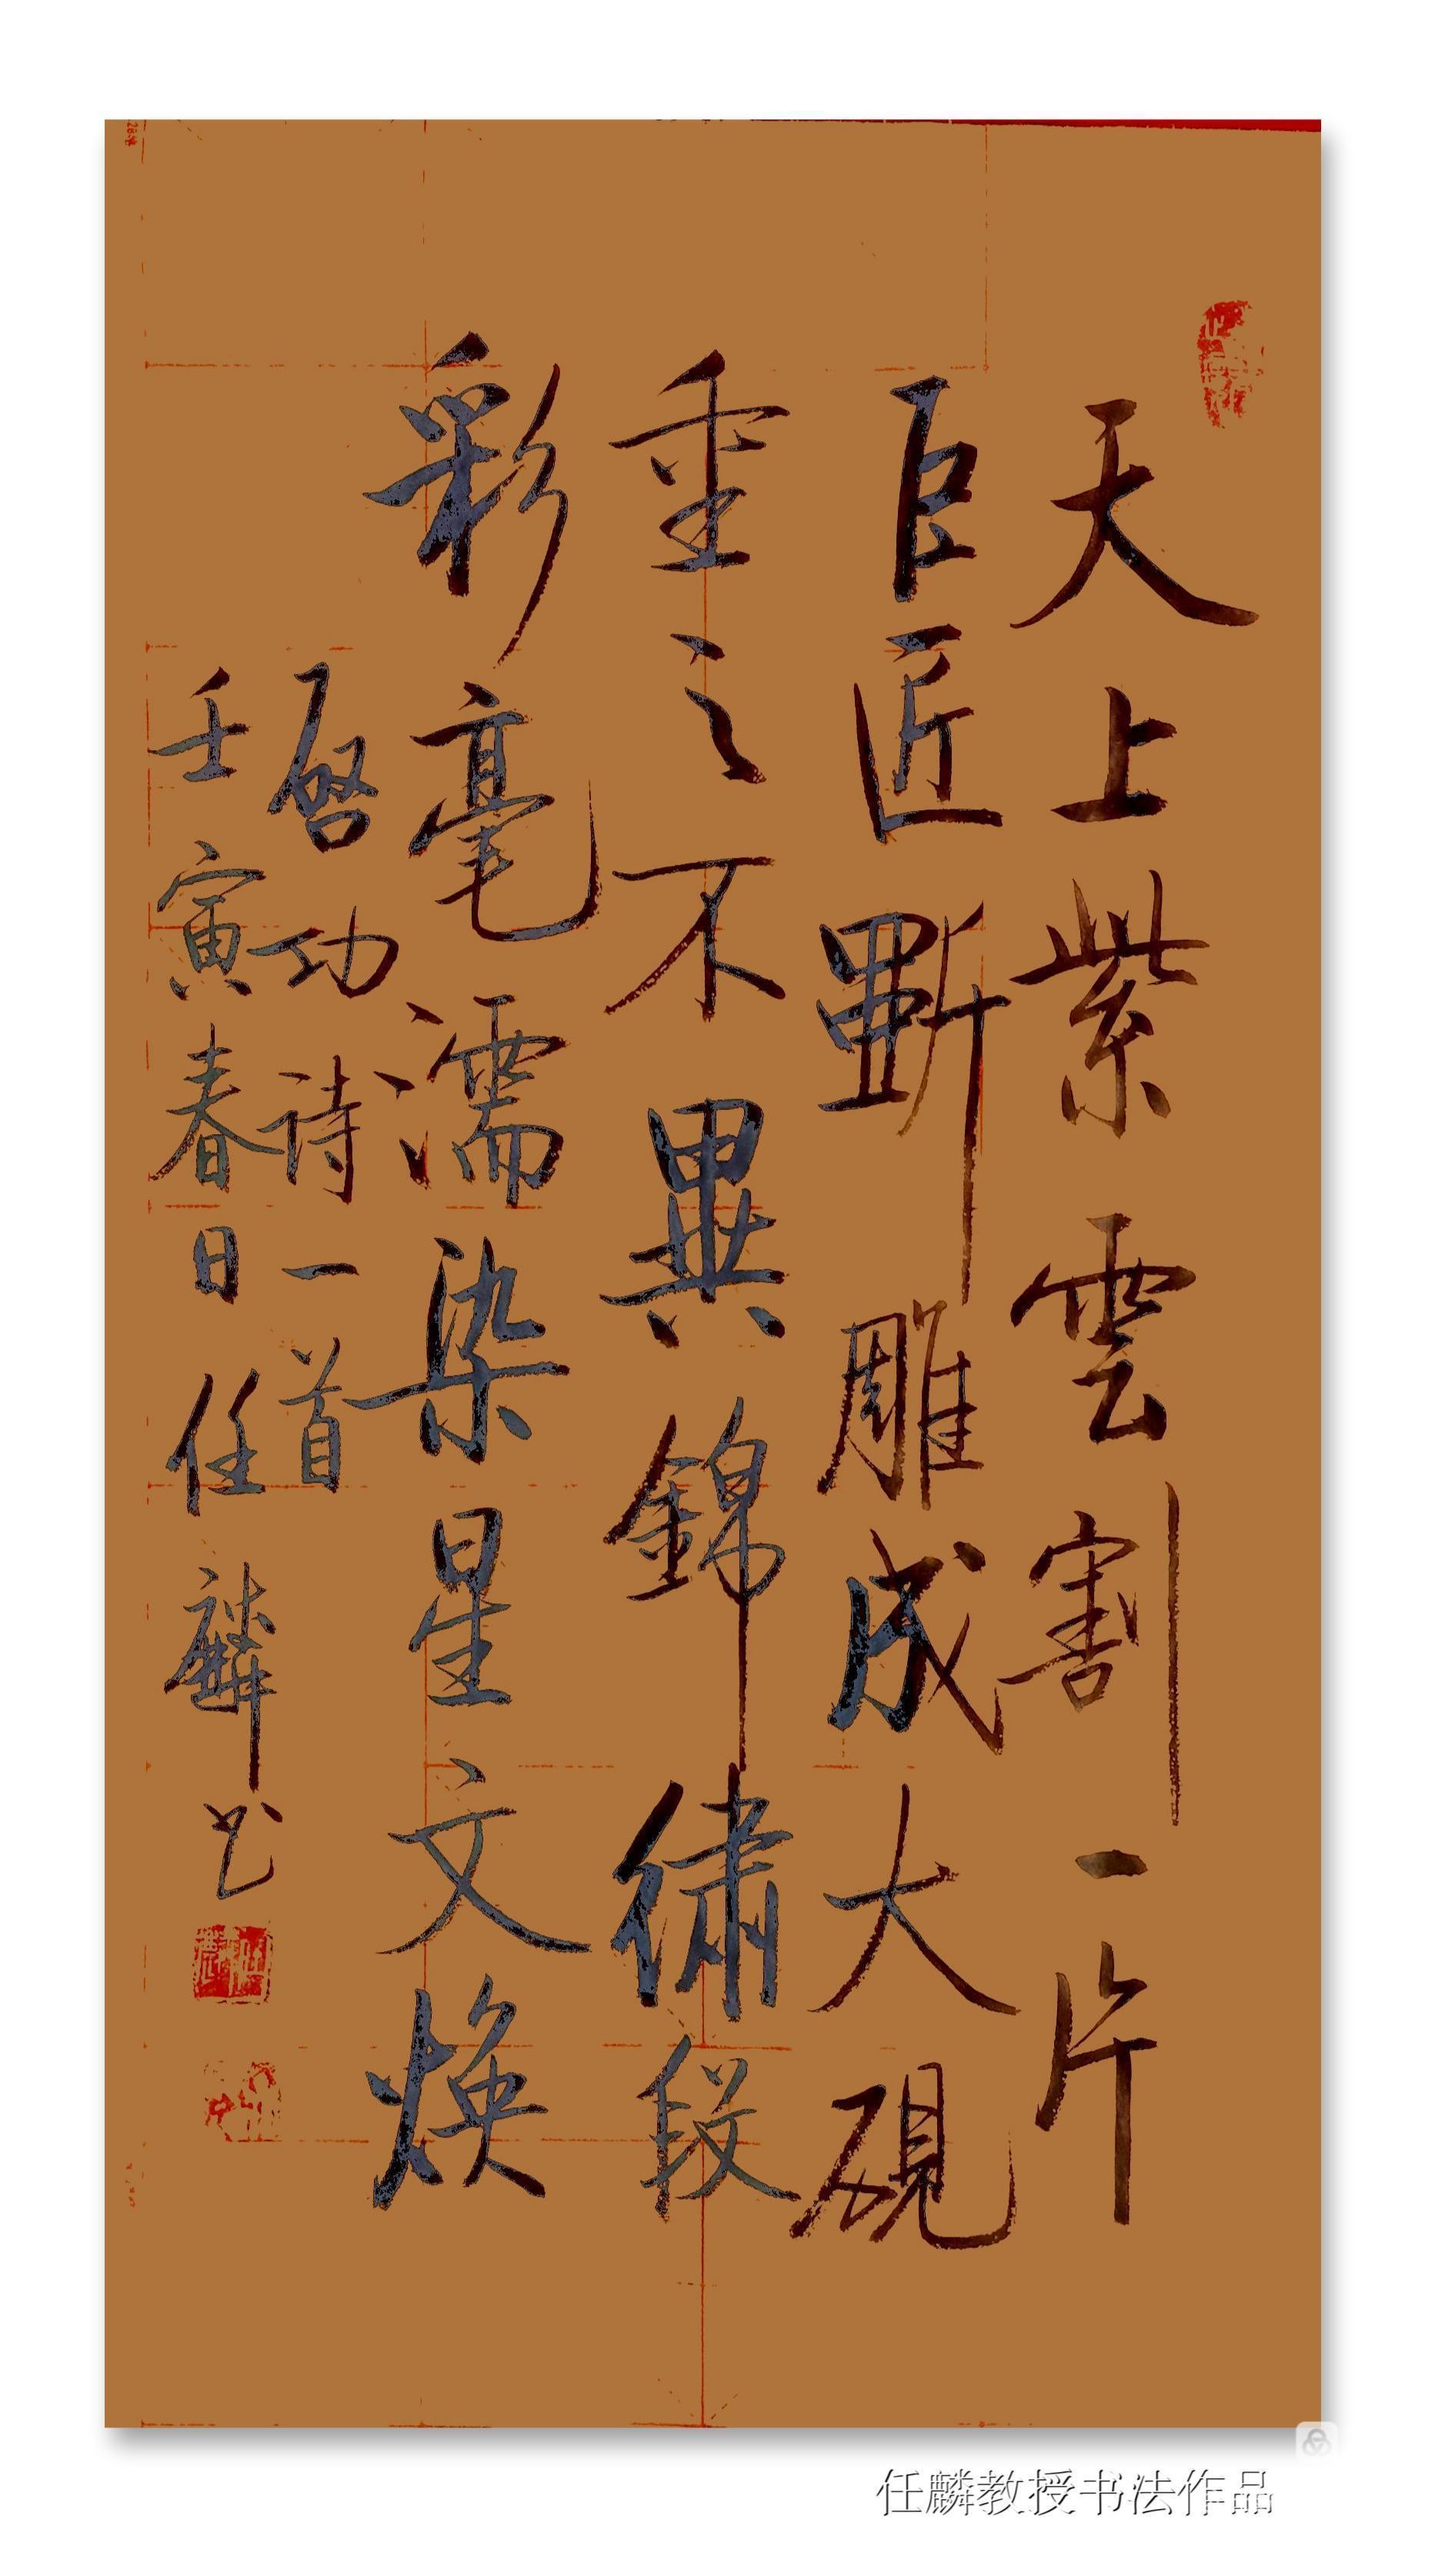 天上紫雲割一片
巨匠斲雕成大硯
重之不異錦繡段
彩毫濡染星文煥
啓功诗一首
壬寅春日任麟书
任麟教授书法作品